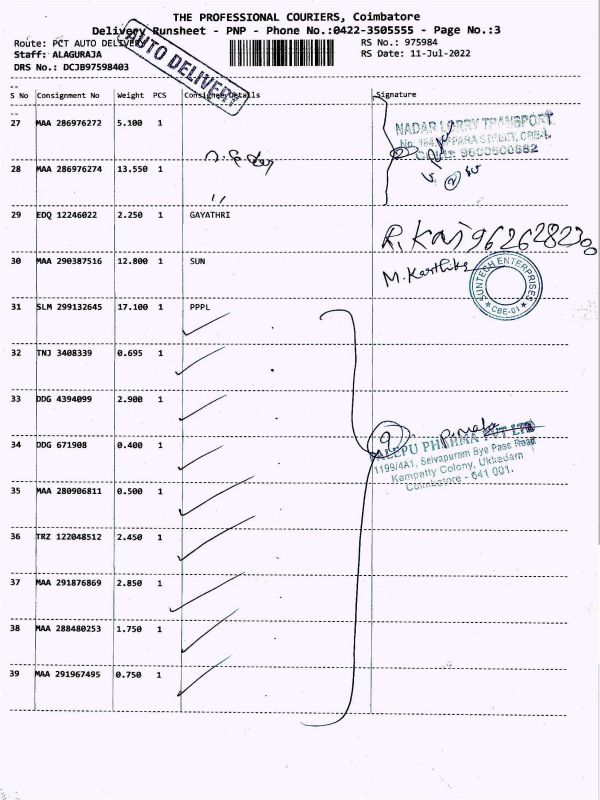 THE PROFESSIONAL COURIERS, Coimbatore
Delivery Runsheet - PNP - Phone No.:0422-3505555 - Page No.:3
Route: PCT AUTO DELIVERY
RS No.: 975984
Staff: ALAGURAJA
RS Date: 11-Jul-2022
DRS No.: DCJB97598403
AUTO DELIVERY
S No Consignment No Weight PCS Consignee Details Signature
27 MAA 286976272 5.100 1
NADAR LORRY TRANSPORT
28 MAA 286976274 13.550 1
29 EDQ 12246022 2.250 1 GAYATHRI
R. Kavi 9626282300
30 MAA 290387516 12.800 1 SUN
M. Karthika
SUNTECH ENTERPRISES
CBE-01
31 SLM 299132645 17.100 1 PPPL
32 TNJ 3408339 0.695 1
33 DDG 4394099 2.900 1
9
34 DDG 671908 0.400 1
PHARMA PVT LTD
1199/4A1, Selvapuram Bye Pass Road
Kempatty Colony, Ukkadam
Coimbatore - 641 001.
35 MAA 280906811 0.500 1
36 TRZ 122048512 2.450 1
37 MAA 291876869 2.850 1
38 MAA 288480253 1.750 1
39 MAA 291967495 0.750 1